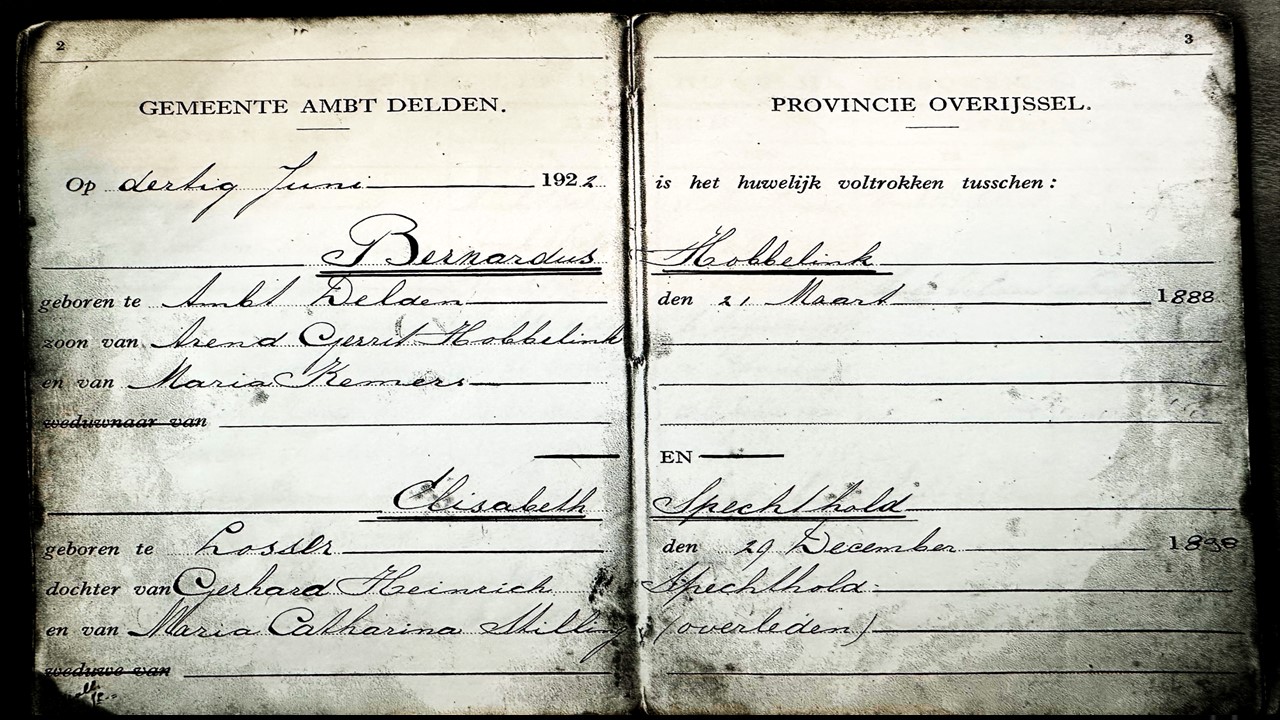 2
GEMEENTE AMBT DELDEN.
Op dertig Juni 1922
Bernardus
geboren te Ambt Delden
zoon van Arend Gerrit Hobbelink
en van Maria Kemers
weduwnaar van
Elisabeth
geboren te Losser
dochter van Gerhard Heinrich
en van Maria Catharina Stilling
weduwe van
3
PROVINCIE OVERIJSSEL.
is het huwelijk voltrokken tusschen:
Hobbelink
den 21 Maart 1888
EN
Spechthold
den 29 December
Spechthold
(overleden)